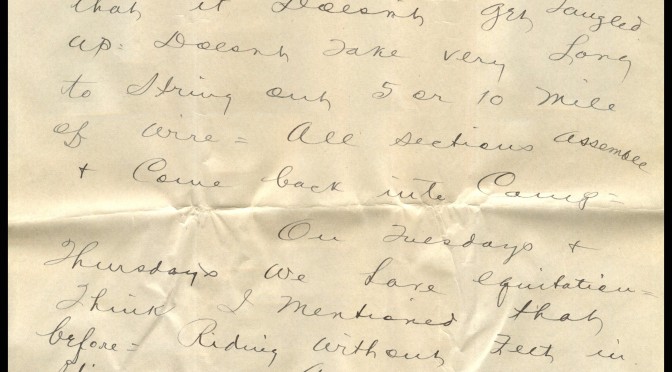 that it Doesn't get Tangled
up = Doesn't Take very Long
to String out 5 or 10 Mile
of wire = All sections assemble
+ Come back into Camp =
On Tuesdays +
Thursdays We have equitation =
Think I Mentioned that
before = Riding Without Feet in